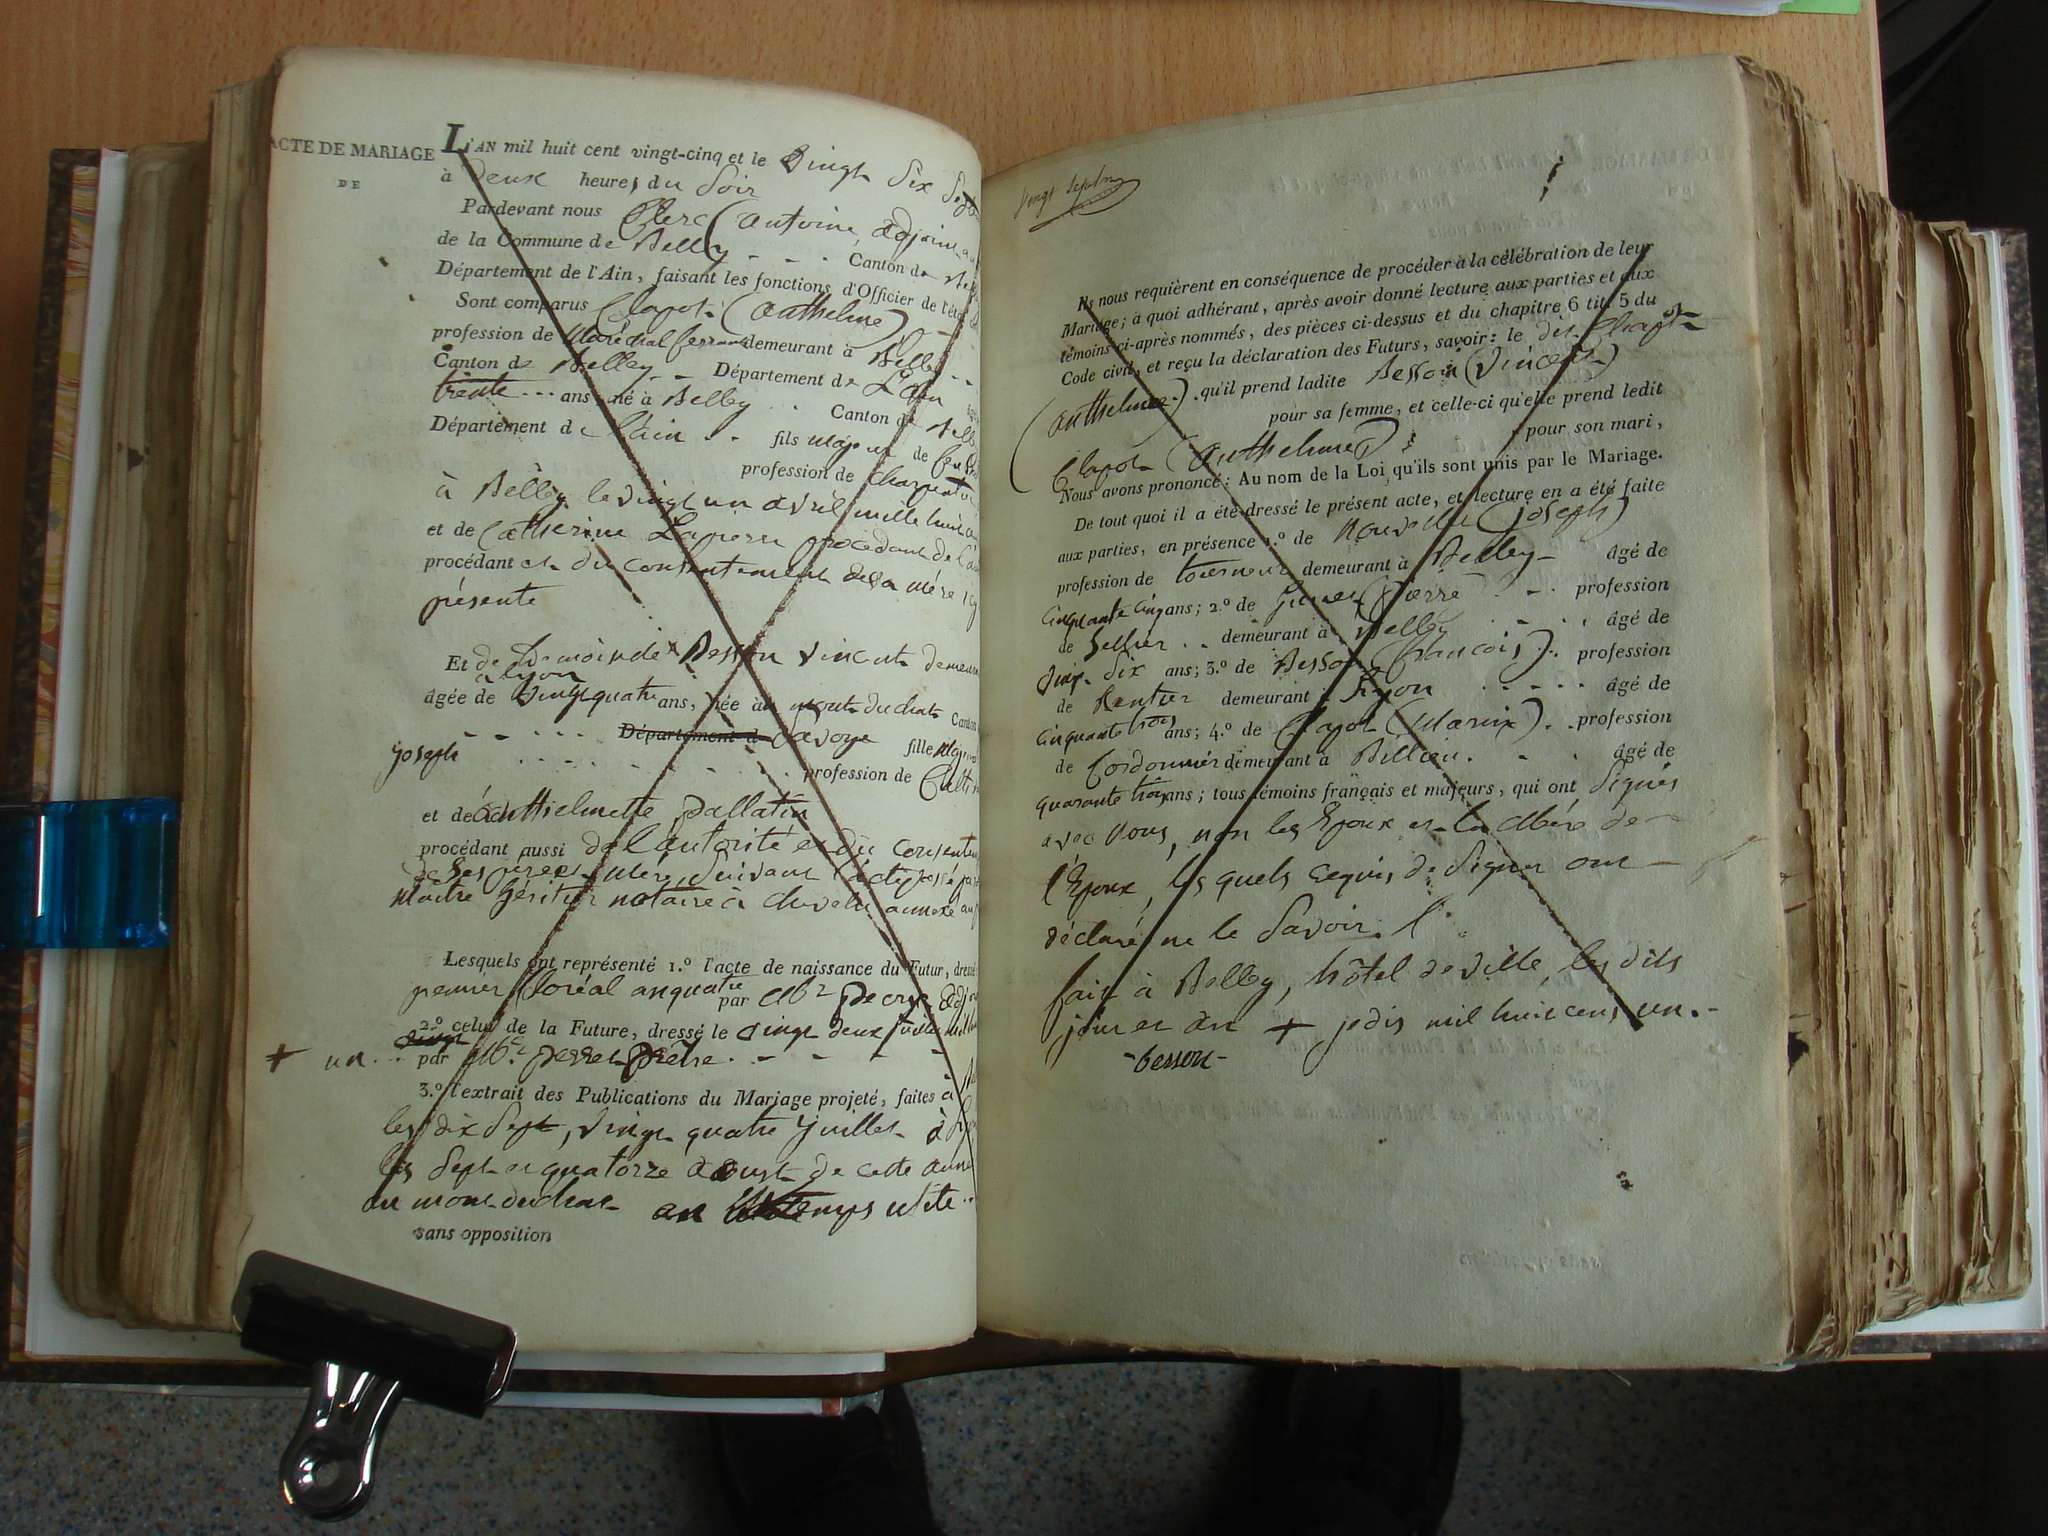 ACTE DE MARIAGE
DE
L'AN mil huit cent vingt-cinq et le Vingt Six Sept
à Deux heures du Soir
Pardevant nous Clerc (antoine, adjoint au
de la Commune de Belley - - - Canton de
Département de l'Ain, faisant les fonctions d'Officier de l'état
Sont comparus Clapot (Anthelme)
profession de Maréchal ferrant demeurant à Belley - -
Canton de Belley - - Département de L'ain
trente - - - ans, né à Belley . . Canton de Bell
Département de l'ain . . fils majeur de feu
profession de Charpentier
à Belley le vingt un avril mille huit cen
et de Catherine Lapierre procédant de l'a
procédant et du consentement de sa mère icy
présente
Et de Demoiselle Besson Vincente demeura
à lyon
âgée de Vingt quatre ans, née au mont du chat Canton
Département de Savoye fille Majeure
joseph . . . . . . . profession de Cultiv
et de anthelmette pallatin
procédant aussi de l'autorité et du consentem
de Ses père et mère, suivant l'acte passé pa
Maitre héritier notaire à Chevelu annexé au p
Lesquels ont représenté 1.º l'acte de naissance du Futur, dressé
premier floréal an quatre par Mr Decrose adjoi
2.º celui de la Future, dressé le Vingt deux juillet mil hu
+ un . . par Mr. perret prêtre . - - - -
3.º l'extrait des Publications du Mariage projeté, faites à
les dix Sept, Vingt quatre juillet à
les Sept et quatorze aoust de cette anné
au mont du chat au temps utile . .
sans opposition
Vingt Septem
Ils nous requièrent en conséquence de procéder à la célébration de leur
Mariage; à quoi adhérant, après avoir donné lecture aux parties et aux
témoins ci-après nommés, des pièces ci-dessus et du chapitre 6 tit. 5 du
Code civil, et reçu la déclaration des Futurs, savoir: le dit Clapot
(anthelme) . . qu'il prend ladite Besson (Vincente)
pour sa femme, et celle-ci qu'elle prend ledit
Clapot (anthelme) pour son mari,
Nous avons prononcé: Au nom de la Loi, qu'ils sont unis par le Mariage.
De tout quoi il a été dressé le présent acte, et lecture en a été faite
aux parties, en présence 1.º de (joseph)
profession de tourneur demeurant à Belley - âgé de
cinquante cinq ans; 2.º de (pierre) . - . profession
de Sellier . . demeurant à Belley . . . âgé de
vingt Six ans; 3.º de Besson (francois) . . profession
de Rentier demeurant à Lyon . . . . . âgé de
cinquante trois ans; 4.º de Clapot (Marin) . . profession
de Cordonnier demeurant à Billieu . . . âgé de
quarante trois ans; tous témoins français et majeurs, qui ont Signés
avec Nous, non les Epoux et la Mère de
l'Epoux, les quels requis de Signer ont
déclaré ne le Savoir.
fait à Belley, hôtel de ville, les dits
jour et an + je dis mil huit cent un . -
- besson -